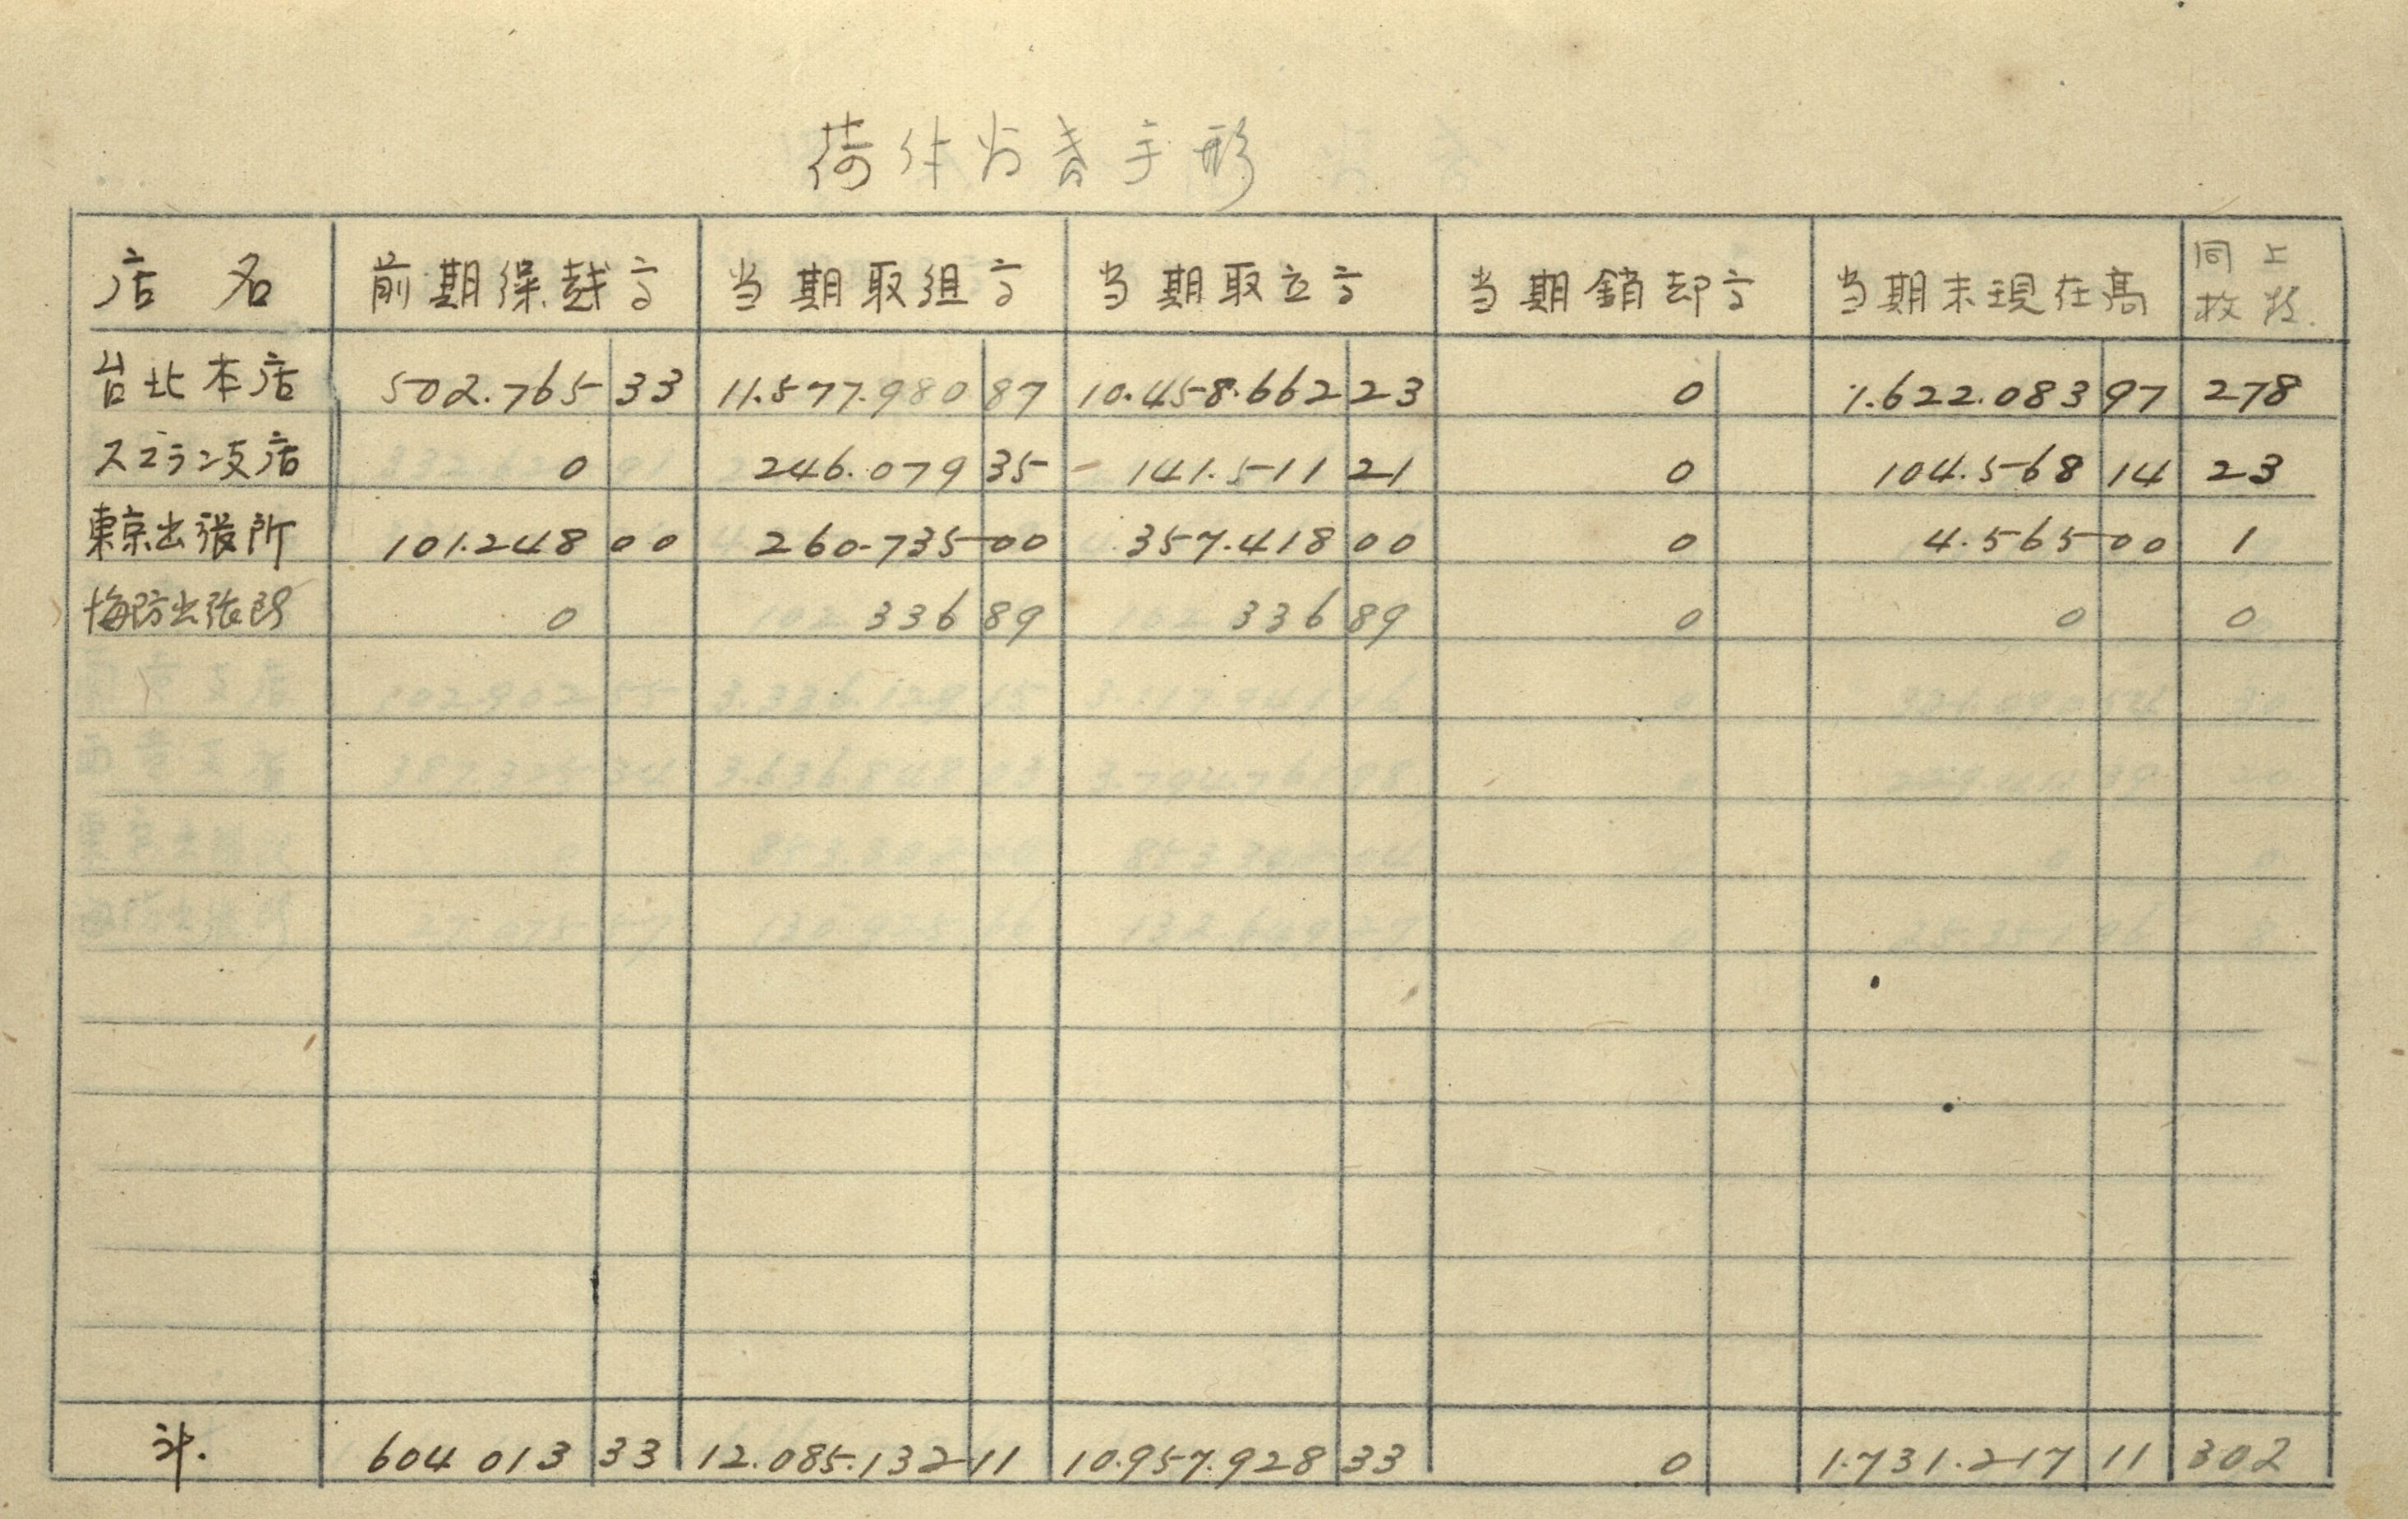 荷付为替手形
店名 前期繰越高 当期取組高 当期取立高 当期銷却高 当期末現在高 同上枚数
台北本店 502.765 33 11.577.980 87 10.458.662 23 0 1.622.083 97 278
スマラン支店 0 246.079 35 141.511 21 0 104.568 14 23
東京出張所 101.248 00 260.735 00 357.418 00 0 4.565 00 1
海防出張所 0 336 89 336 89 0 0 0
計. 604 013 33 12.085.132 11 10.957.928 33 0 1.731.217 11 302